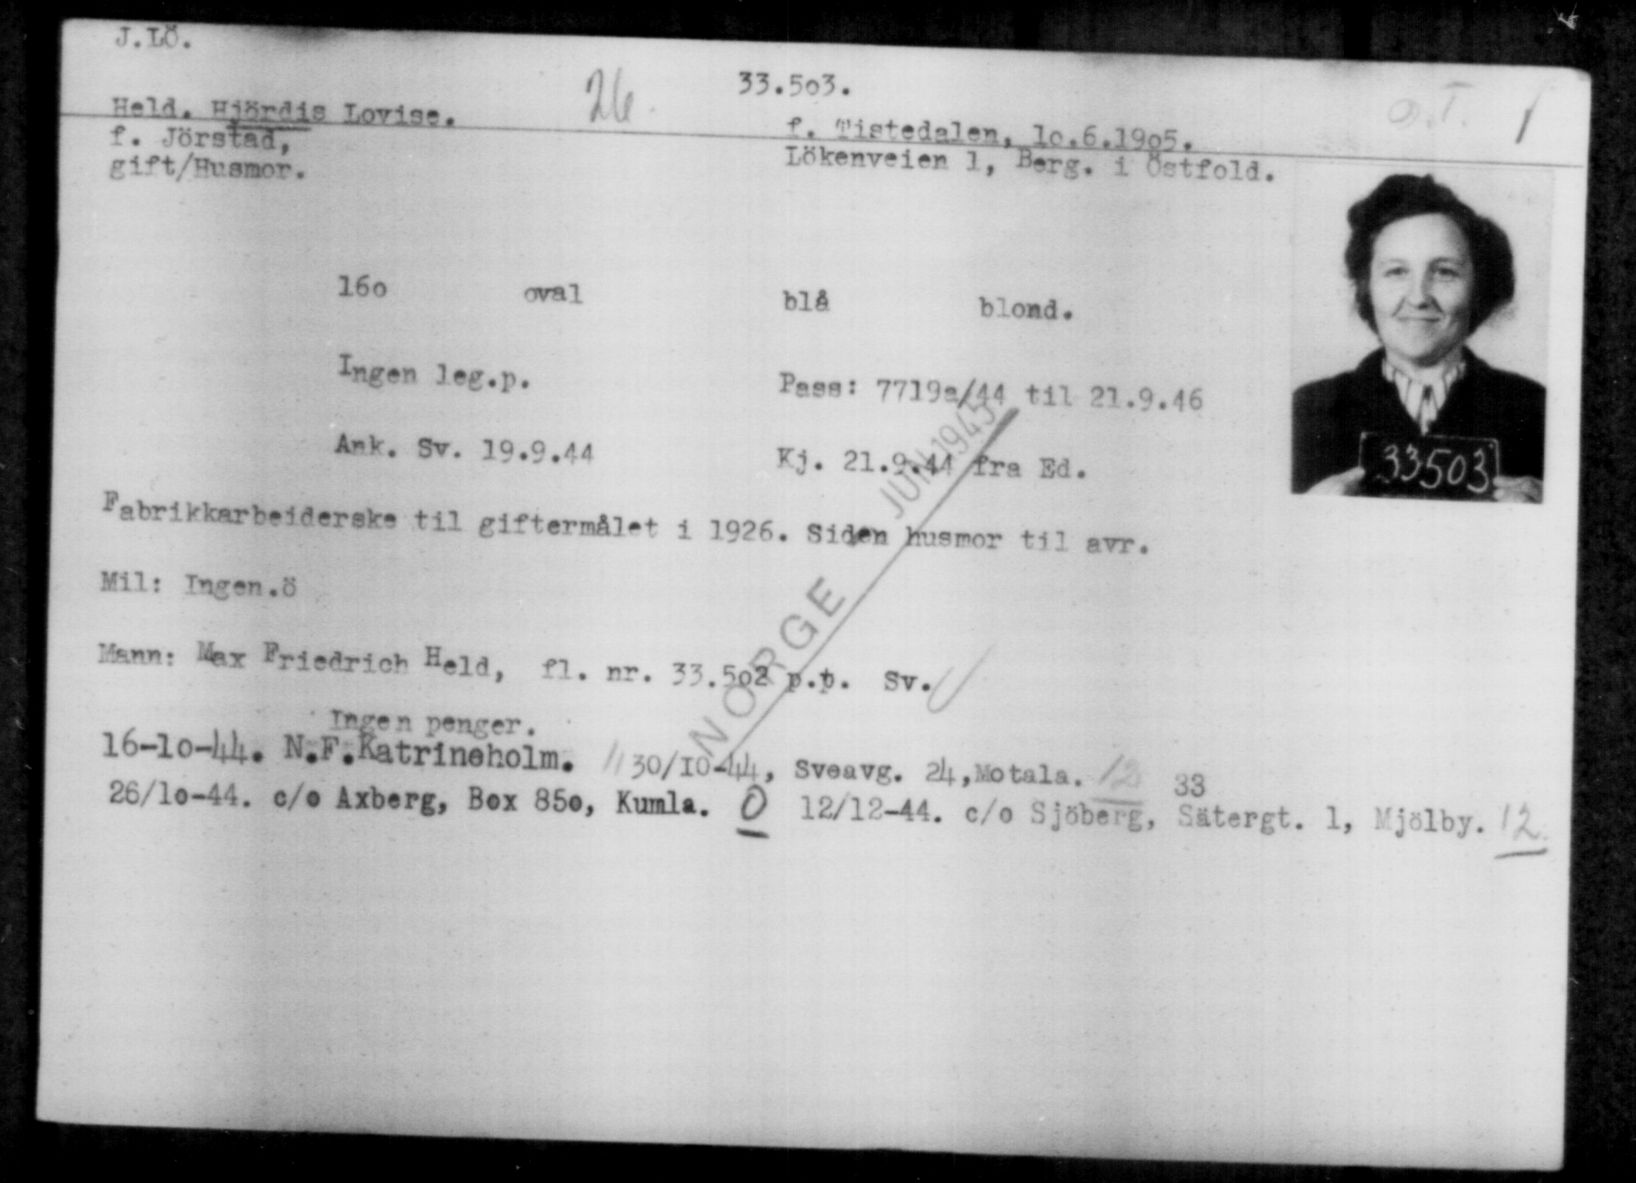 J.LÖ.
26.
33.5o3.
O.T. 1
Held. Hjördis Lovise.
f. Tistedalen, 1o.6.19o5.
f. Jörstad,
Lökenveien 1, Berg. i Östfold.
gift/Husmor.
16o oval blå blond.
Ingen leg.p.
Pass: 7719a/44 til 21.9.46
Ank. Sv. 19.9.44
Kj. 21.9.44 fra Ed.
33503
Fabrikkarbeiderske til giftermålet i 1926. Siden husmor til avr.
Mil: Ingen.ö
Mann: Max Friedrich Held, fl. nr. 33.5o2 p.t. Sv.
NORGE JUN 1945
Ingen penger.
16-1o-44. N.F.Katrineholm. 11 30/10-44, Sveavg. 24,Motala. 12 33
26/1o-44. c/o Axberg, Box 85o, Kumla. O 12/12-44. c/o Sjöberg, Sätergt. 1, Mjölby. 12